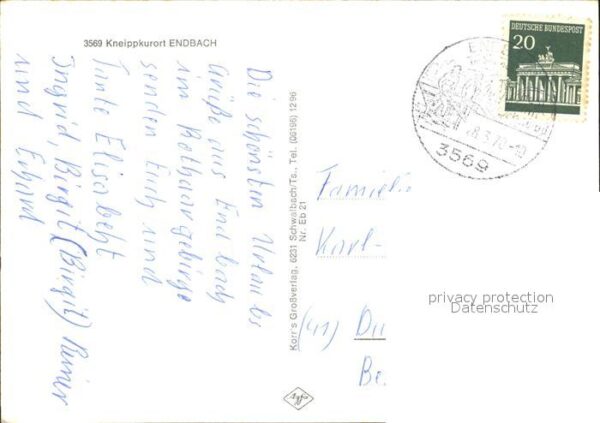 3569 Kneippkurort ENDBACH
Die schönsten Urlaubs
Grüße aus Endbach
im Rothaargebirge
senden Euch und
Tante Elisabeht
Ingrid, Birgit (Birgit) Rainer
und Erhard
Korr's Großverlag, 6231 Schwalbach/Ts., Tel. (06196) 1296
Nr. Eb 21
Agfa
20
DEUTSCHE BUNDESPOST
3569
Familie
Karl-
(41) Du
Be
privacy protection
Datenschutz